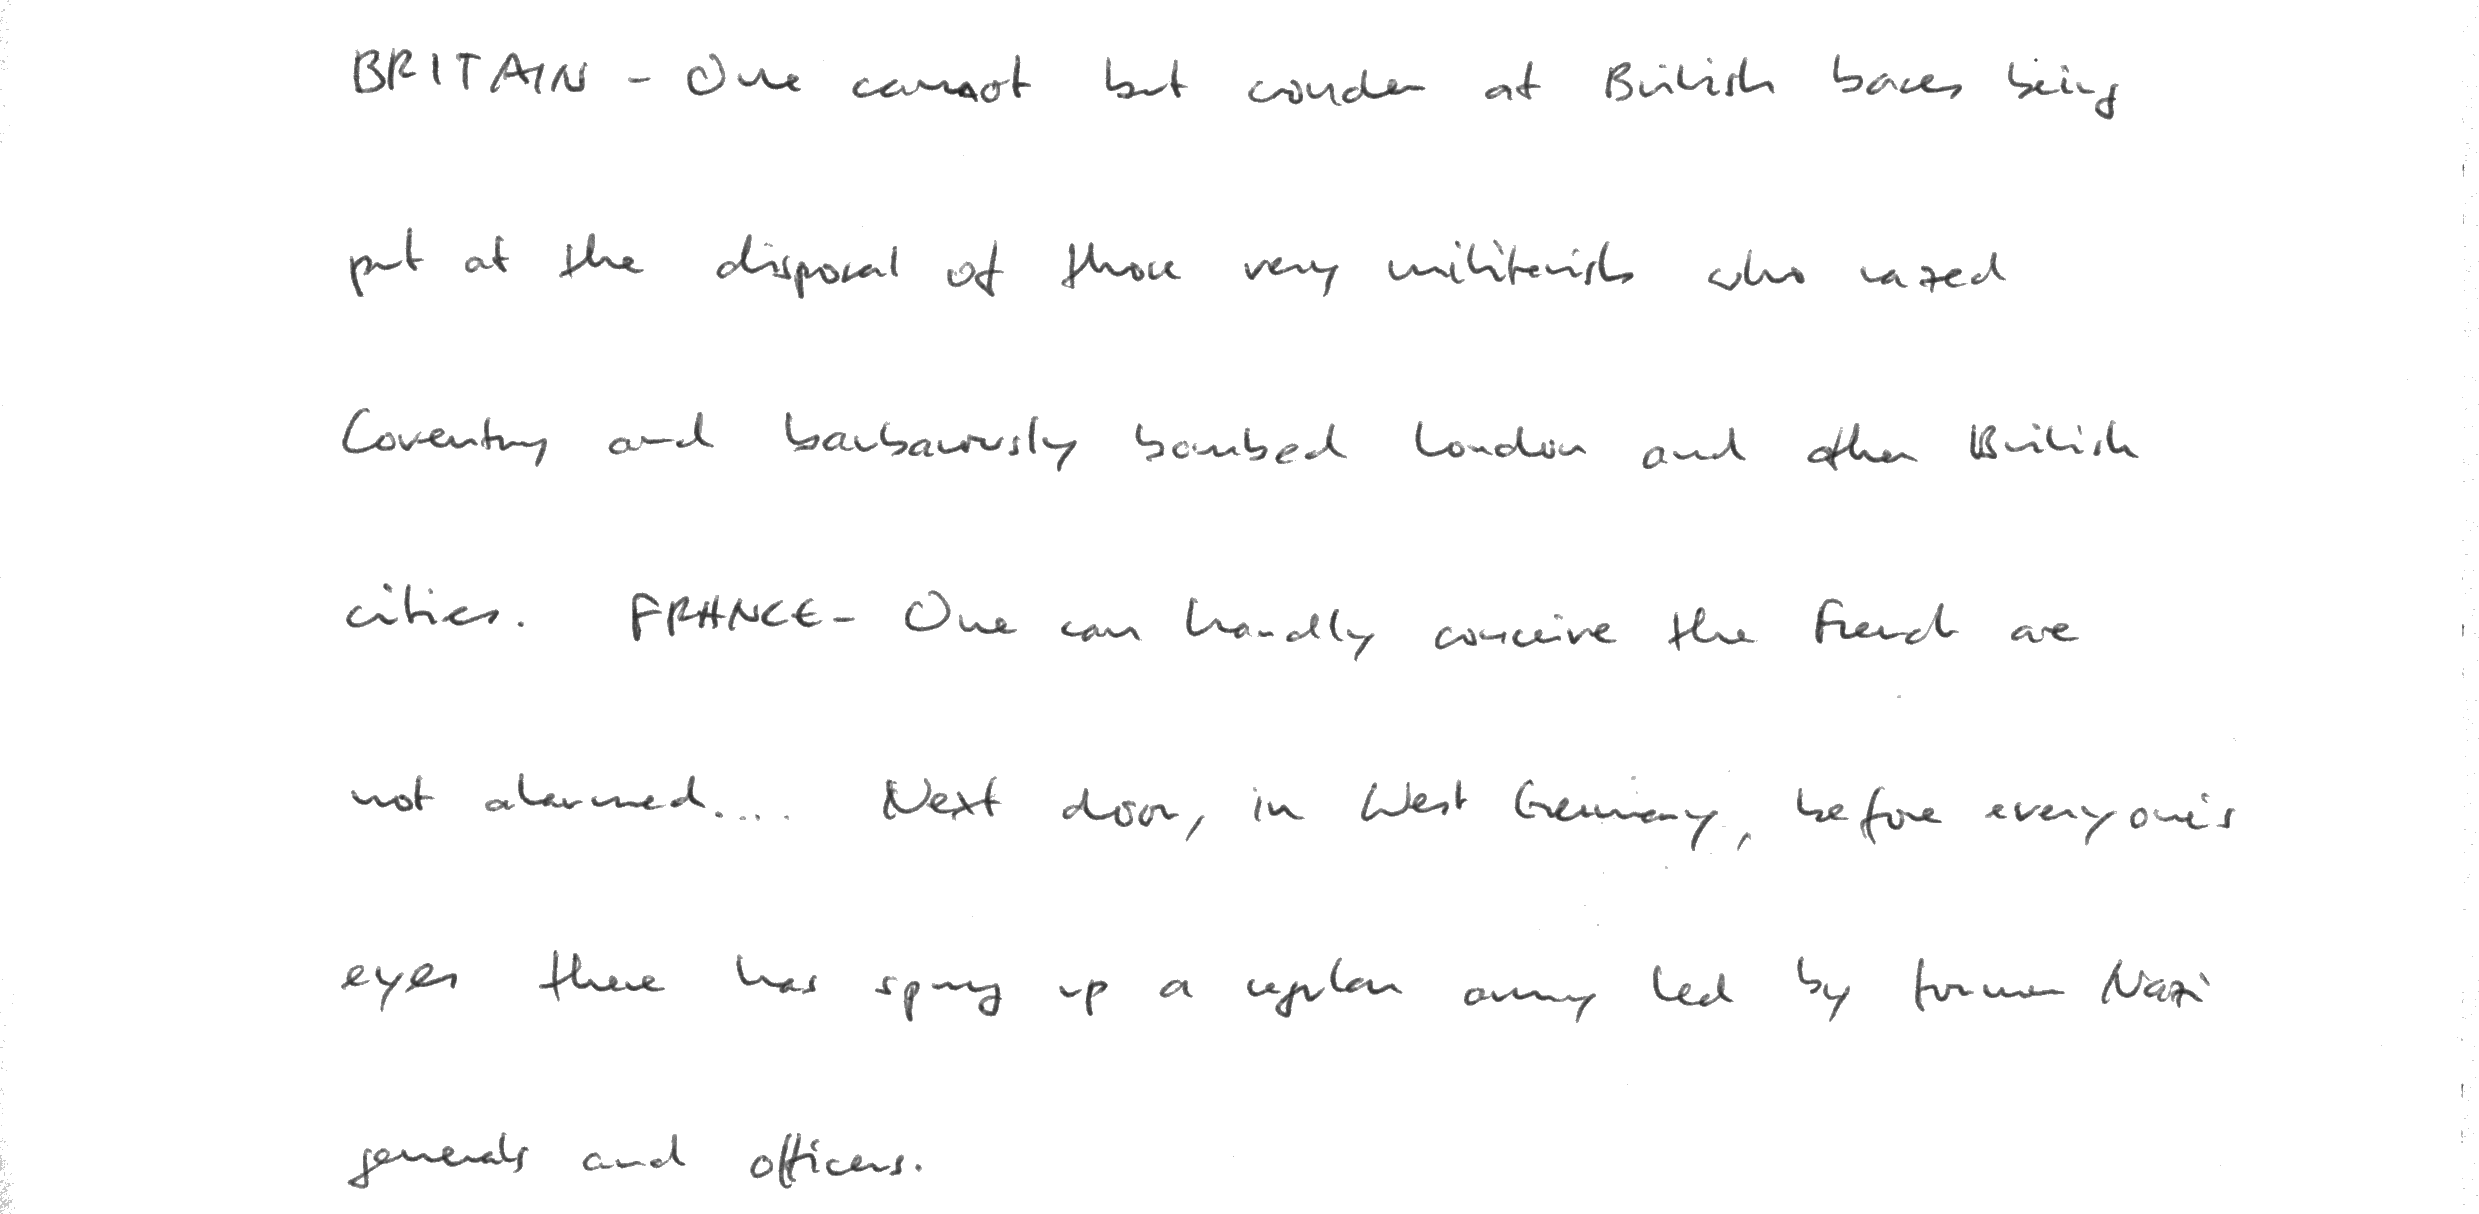 BRITAIN - One cannot but wonder at British bases being
put at the disposal of those very militarists who razed
Coventry and barbarously bombed London and other British
cities. FRANCE - One can hardly conceive the French are
not alarmed.... Next door, in West Germany, before everyone's
eyes there has sprung up a regular army led by former Nazi
generals and officers.